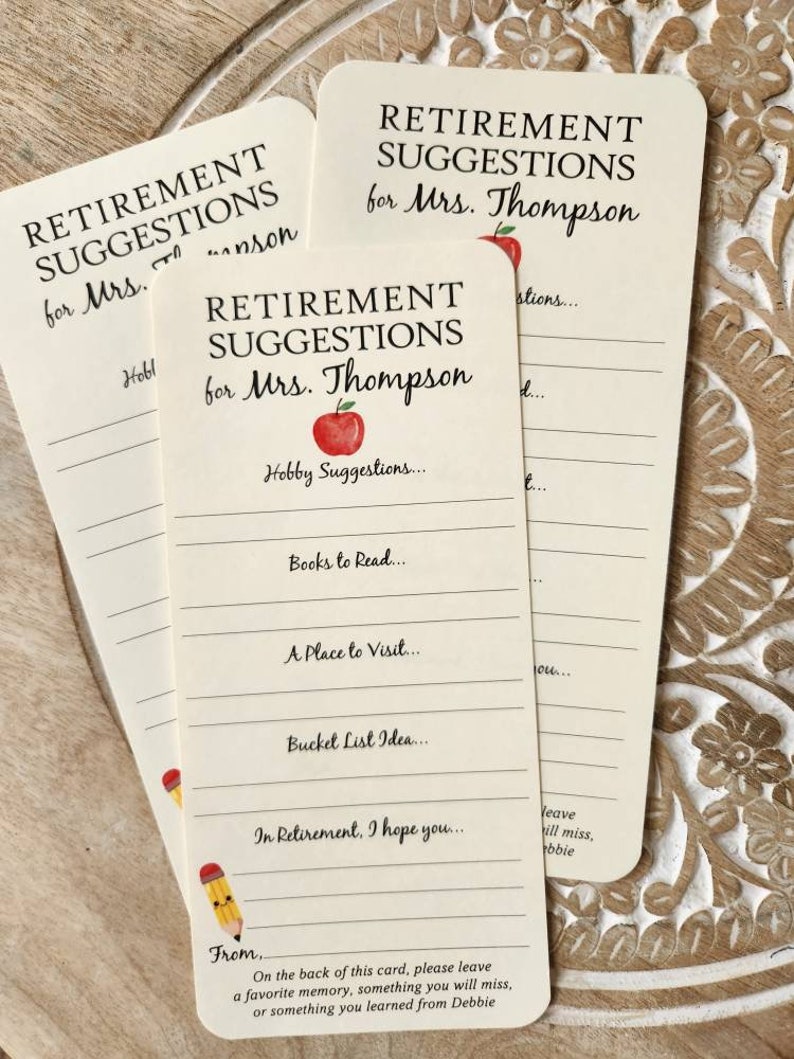 RETIREMENT
SUGGESTIONS
for Mrs. Thompson
stions...
d...
t...
...
you...
leave
ill miss,
ebbie
RETIREMENT
SUGGESTIONS
for Mrs. Th mpson
Hobb
RETIREMENT
SUGGESTIONS
for Mrs. Thompson
Hobby Suggestions...
Books to Read...
A Place to Visit...
Bucket List Idea...
In Retirement, I hope you...
From,
On the back of this card, please leave
a favorite memory, something you will miss,
or something you learned from Debbie